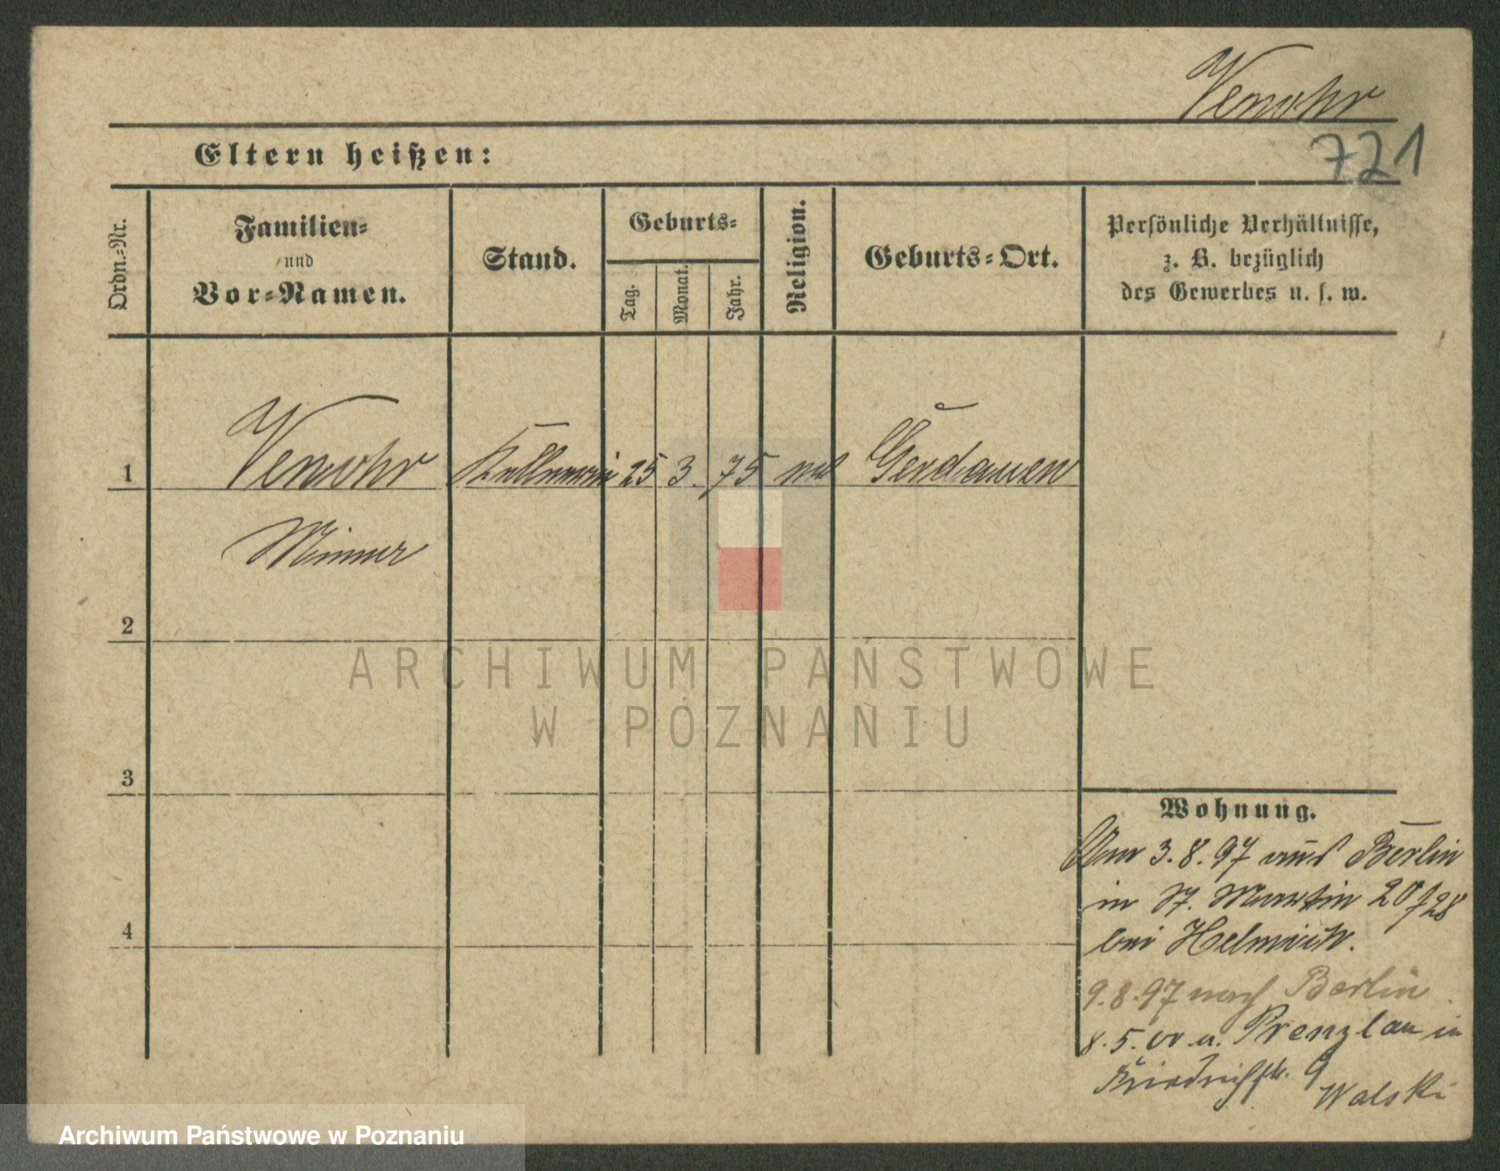 Venohr
721
Eltern heißen:
Ordn.-Nr.
Familien-
und
Vor-Namen.
Stand.
Geburts-
Tag.
Monat.
Jahr.
Religion.
Geburts-Ort.
Persönliche Verhältnisse,
z. B. bezüglich
des Gewerbes u. s. w.
1 Venohr Kellnerin 25 3. 75 Gerdauen
2
3
4
ARCHIWUM PAŃSTWOWE
W POZNANIU
Wohnung.
3.8.97 aus Berlin
in St. Martin
bei
9.8.97 nach Berlin
8.5.00 a. Prenzlau in
Friedrichstr. 9
Walski
Archiwum Państwowe w Poznaniu